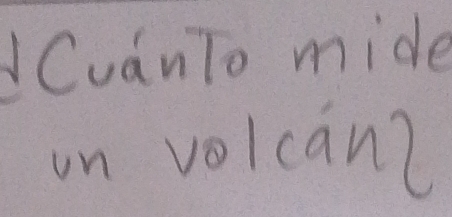 ¿Cuánto mide
un volcán?